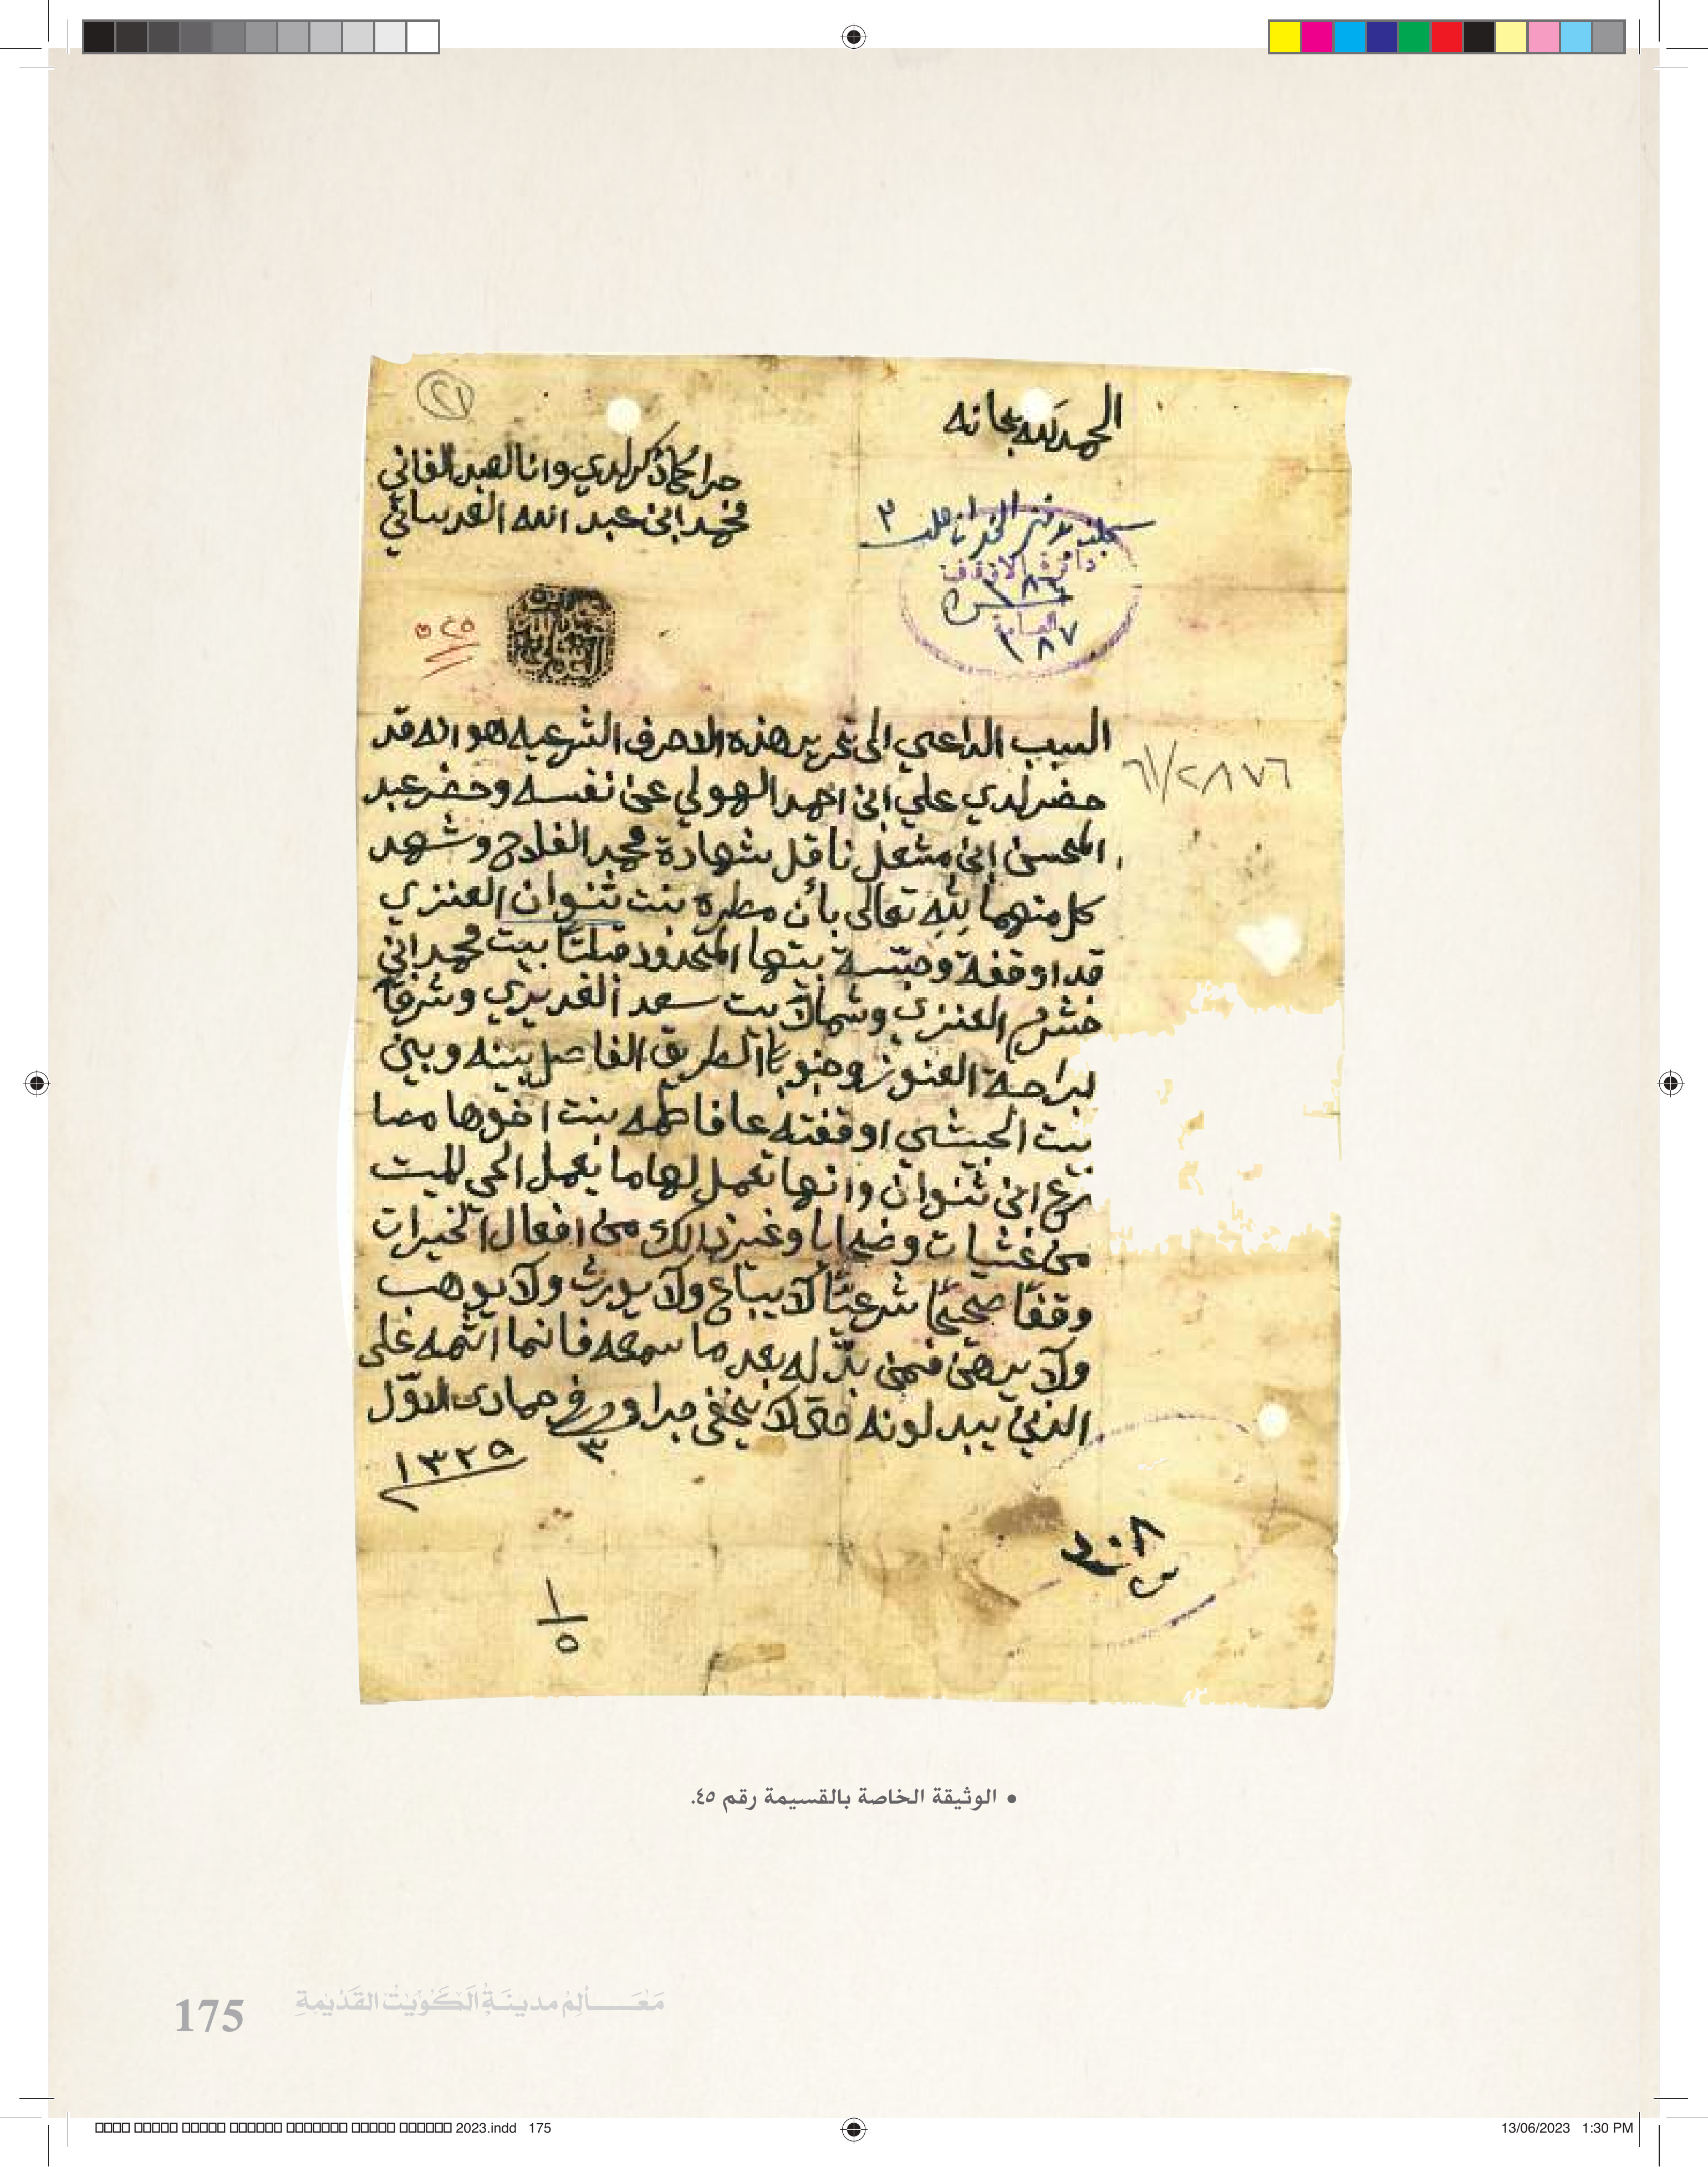 الحمد لله سبحانه
٢١
جرا كما ذكر لدي وانا العبد الفاني
محمد ابن عبد الله العدساني
دائرة الاوقاف
العامة
٥٢٥
السبب الداعي الى تحرير هذه الاحرف الشرعيه هو انه قد
٦١/٢٨٧٦
حضر لدي علي ابن احمد الهولي عن نفسه وحضر عبد
المحسن ابن مشعل ناقل شهادة محمد الفلاح وشهد
كل منهما لله تعالى بأن مطره بنت ثنوان العنزي
قد اوقفة وحبسة بيتها المحدود قبلتاً بيت محمد ابن
خشرم العنزي وشمالاً بيت سعد الغديري وشرقاً
براحة العنوز وجنوباً الطريق الفاصل بينه وبين
بيت الحبيشي اوقفته عا فاطمه بنت اخوها مصا
رع ابن ثنوان وانها تعمل لها ما يعمل الحي للميت
من عشيات وضحايا وغير ذالك من افعال الخيرات
وقفاً صحيحاً شرعيّاً لا يباع ولا يورث ولا يوهب
ولا يرهن فمن بدّله بعد ما سمعه فانما اثمه على
الذين يبدلونه حتى لا يخفى جرا وحرر في جمادى الاوّل
٣
١٣٢٥
١
٥
• الوثيقة الخاصة بالقسيمة رقم ٤٥.
175
مَعَــالِمُ مدينَةِ الكُوَيْتْ القَدْيمةِ
2023.indd 175
13/06/2023 1:30 PM